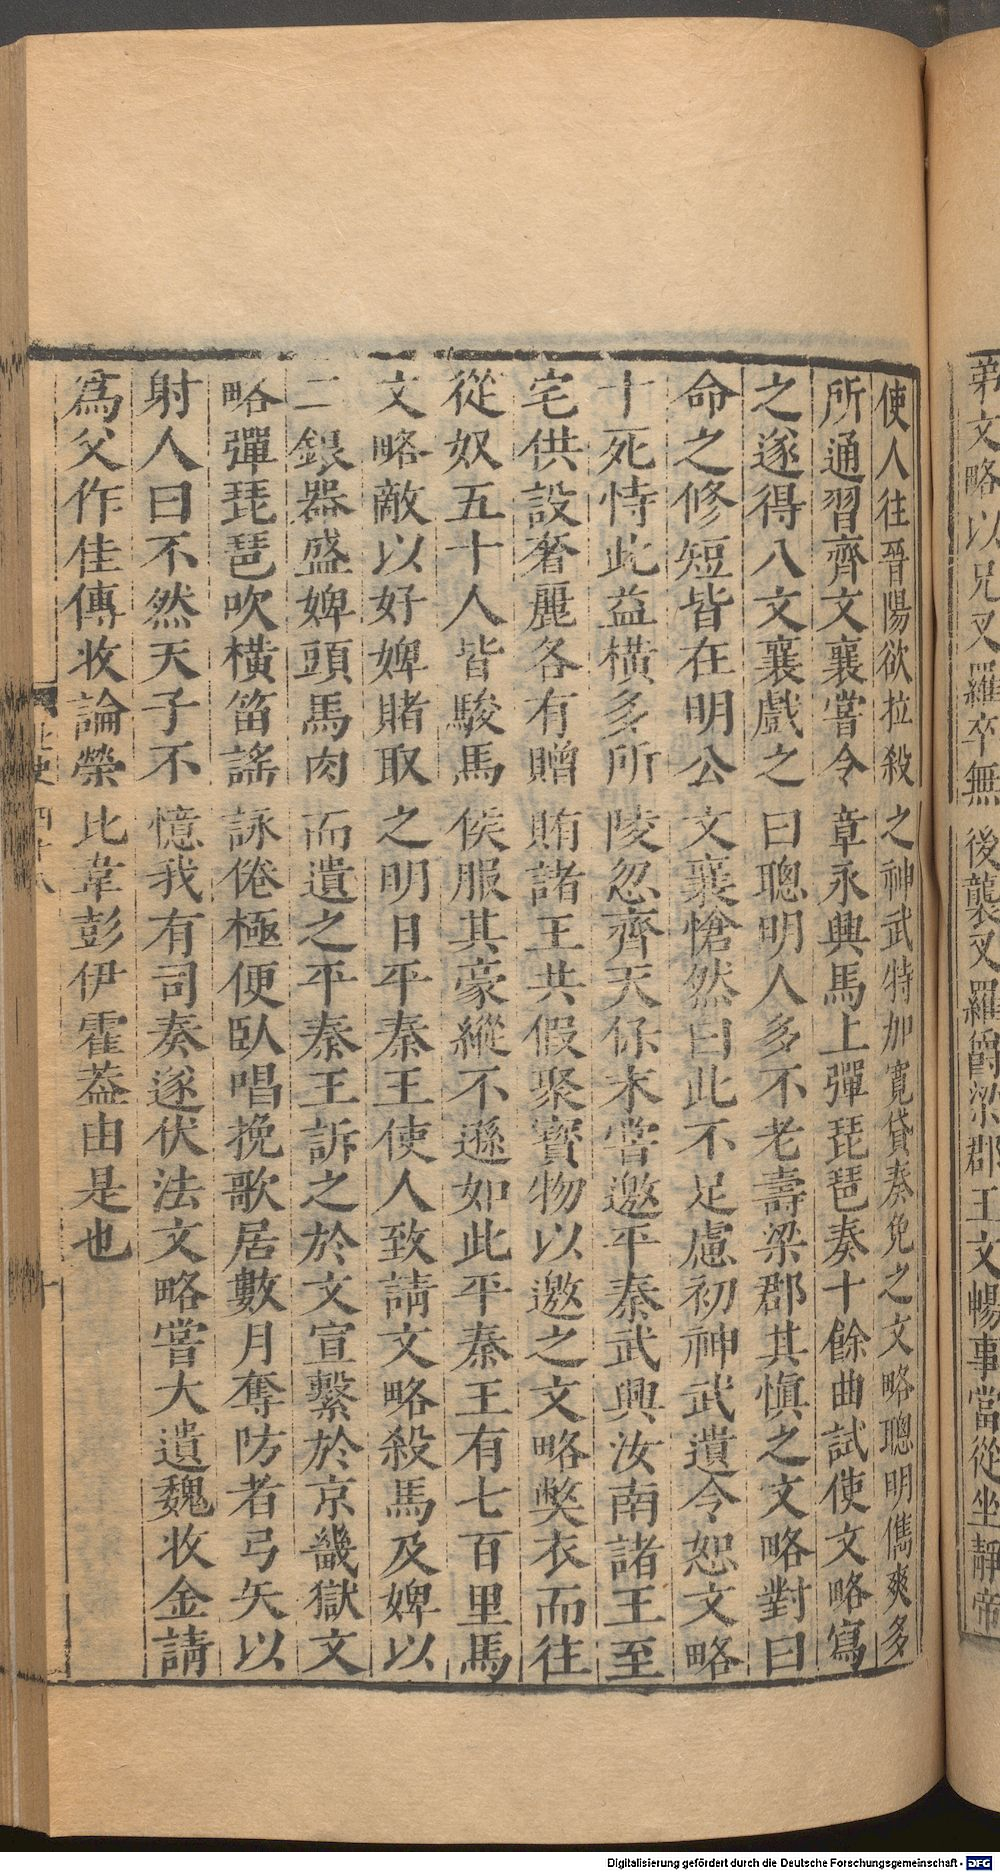 弟文略以兄叉羅卒無後襲叉羅爵梁郡王文暢事當從坐靜帝
使人往晉陽欲拉殺之神武特加寬貸奏免之文略聰明儁爽多
所通習齊文襄嘗令章永興馬上彈琵琶奏十餘曲試使文略寫
之遂得八文襄戲之曰聰明人多不老壽梁郡其慎之文略對曰
命之修短皆在明公文襄愴然曰此不足慮初神武遺令恕文略
十死恃此益橫多所陵忽齊天保末嘗邀平秦武興汝南諸王至
宅供設奢麗各有贈賄諸王共假聚寳物以邀之文略獘衣而往
從奴五十人皆駿馬侯服其豪縱不遜如此平秦王有七百里馬
文略敵以好婢賭取之明日平秦王使人致請文略殺馬及婢以
二銀器盛婢頭馬肉而遺之平秦王訴之於文宣繫於京畿獄文
略彈琵琶吹橫笛謠詠倦極便臥唱挽歌居數月奪防者弓矢以
射人曰不然天子不憶我有司奏遂伏法文略嘗大遺魏收金請
爲父作佳傳收論榮比韋彭伊霍葢由是也
北史四十八
Digitalisierung gefördert durch die Deutsche Forschungsgemeinschaft - DFG